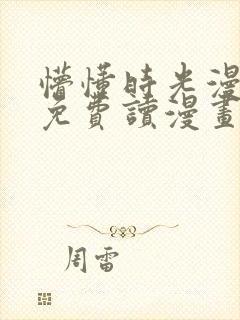 懵懂時光漫
免費讀漫畫
周雷